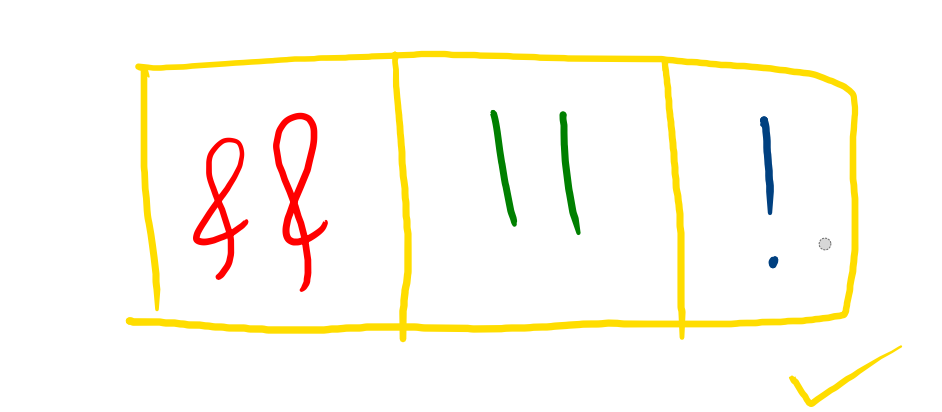 && || !